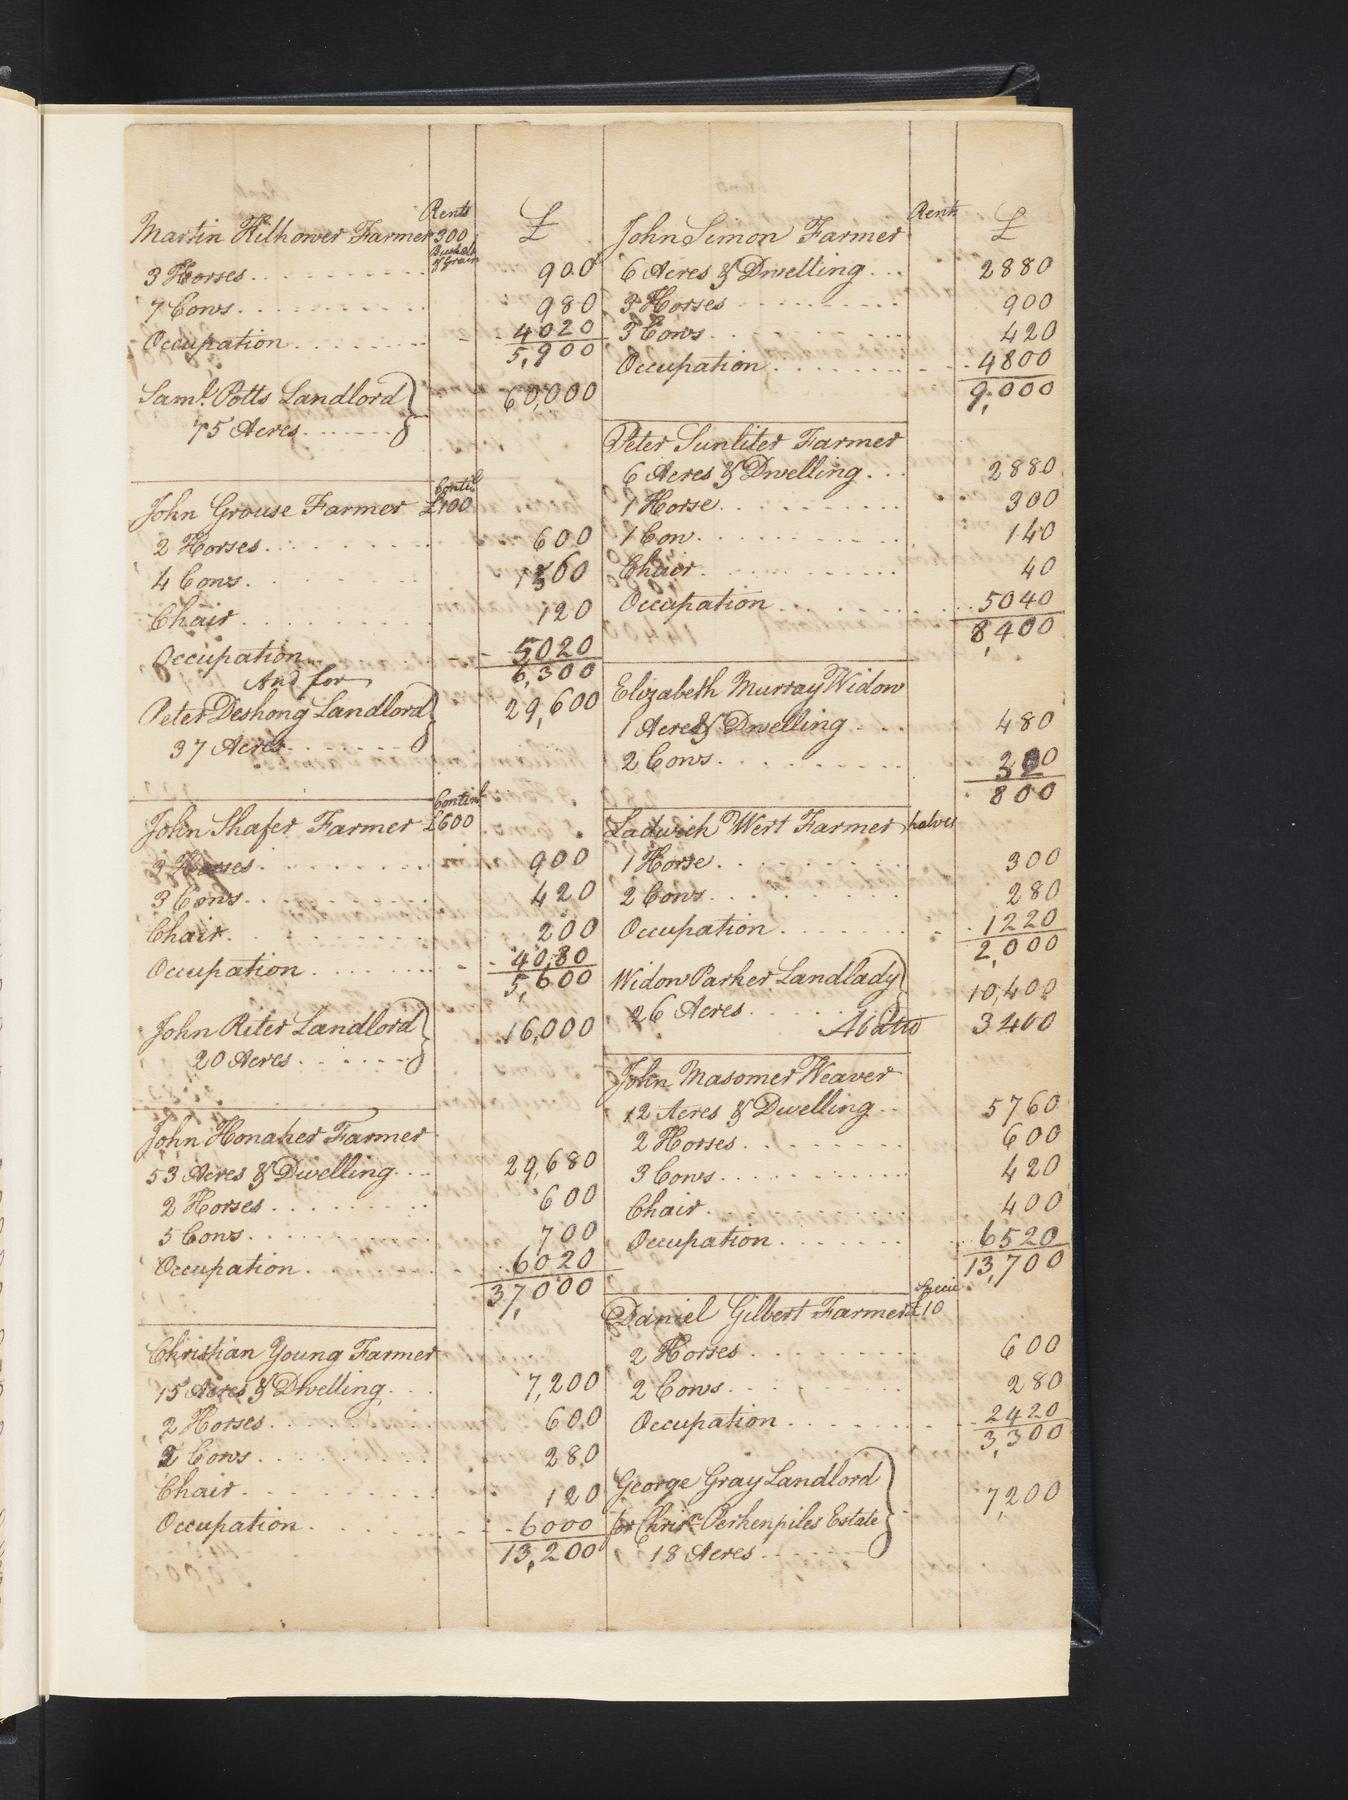 Rents £
Martin Hilhower Farmer 300 Bushels of Grain
3 Horses 900
7 Cows 980
Occupation 4020
5,900
Saml. Potts Landlord 60,000
75 Acres
Contil.
John Grouse Farmer £100
2 Horses 600
4 Cows 560
Chair 120
Occupation 5020
6,300
And for
Peter Deshong Landlord 29,600
37 Acres
Continl
John Shafer Farmer £600
3 Horses 900
3 Cows 420
Chair 200
Occupation 4080
5,600
John Riter Landlord 16,000
20 Acres
John Honaker Farmer
53 Acres & Dwelling 29,680
2 Horses 600
5 Cows 700
Occupation 6020
37,000
Christian Young Farmer
15 Acres & Dwelling 7,200
2 Horses 600
2 Cows 280
Chair 120
Occupation 6000
13,200
Rents £
John Simon Farmer
6 Acres & Dwelling 2880
3 Horses 900
3 Cows 420
Occupation 4800
9,000
Peter Sunliter Farmer
6 Acres & Dwelling 2880
1 Horse 300
1 Cow 140
Chair 40
Occupation 5040
8,400
Elizabeth Murray Widow
1 Acre & Dwelling 480
2 Cows 320
800
Ladwich Wert Farmer halves
1 Horse 300
2 Cows 280
Occupation 1220
2,000
Widow Parker Landlady 10,400
26 Acres
Abatd 3400
John Masomer Weaver
12 Acres & Dwelling 5760
2 Horses 600
3 Cows 420
Chair 400
Occupation 6520
13,700
Specie
Daniel Gilbert Farmer £10
2 Horses 600
2 Cows 280
Occupation 2420
3,300
George Gray Landlord
for Chrisr. Perhenpiles Estate 7,200
18 Acres